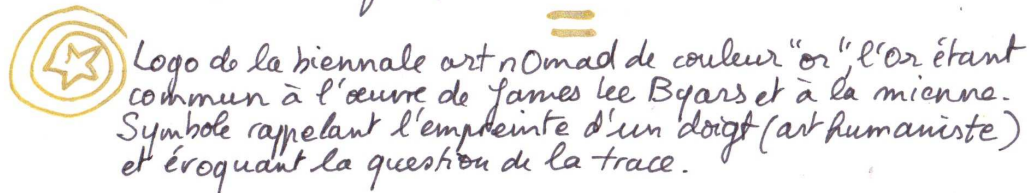 Logo de la biennale art nOmad de couleur "or", l'Or étant
commun à l'œuvre de James Lee Byars et à la mienne.
Symbole rappelant l'empreinte d'un doigt (art humaniste)
et évoquant la question de la trace.